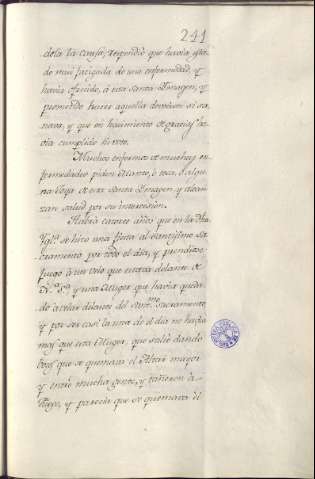 241
dola la causa, respondiò que havia esta-
do mui fatigada de una enfermedad, y
haverse ofrecido, à esta Santa Ymagen, y
prometido hacer aquella devocion si sa-
nava, y que en hacimiento de gracias ha-
via cumplido su voto.
Muchos enfermos de muchas en-
fermedades piden Manto, ò toca, ò algu-
na Joya de esta Santa Ymagen, y alcan-
zan salud por su intercesion.
Havrà catorce años que en la dha
Ygl.ª se hizo una fiesta al Santissimo Sa-
cramento por todo el dia, y prendiose
fuego à un velo que estava delante de
N.ª S.ª y una Muger que havia queda-
do à velar delante del Sant.mo Sacramento
y por ser casi la una de el dia no havia
mas que esta Muger, que saliò dando
voces que se quemava el Altar mayor
y entrò mucha gente, y tañeron à
fuego, y parecia que se quemava el